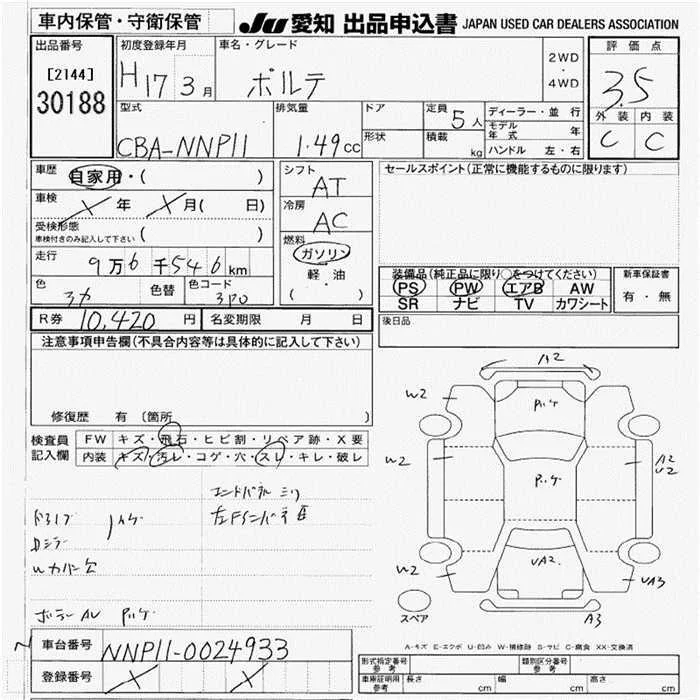 車内保管・守衛保管
JU 愛知 出品申込書 JAPAN USED CAR DEALERS ASSOCIATION
出品番号
[2144]
30188
初度登録年月
H17 3月
車名・グレード
ポルテ
2WD
・
4WD
評価点
3.5
外装 内装
C C
型式
CBA-NNP11
排気量
1.49cc
ドア
形状
定員 5人
積載 kg
ディーラー・並行
モデル年式 年
ハンドル 左・右
車歴 自家用・( )
車検 X年 X月( 日)
受検形態
車検付きのみ記入して下さい ( )
走行 9万6千546km
色 色替 色コード
3P0
シフト
AT
冷房
AC
燃料
ガソリン
軽・油
( )
セールスポイント(正常に機能するものに限ります)
装備品(純正品に限り○をつけてください)
PS PW エアB AW
SR ナビ TV カワシート
新車保証書
有・無
R券 10,420円 名変期限 月 日
後日品
注意事項申告欄(不具合内容等は具体的に記入して下さい)
修復歴 有 〔箇所 〕
検査員
記入欄
FW キズ・飛石・ヒビ割・リペア跡・X要
内装 キズ・汚レ・コゲ・穴・スレ・キレ・破レ
A2
W2
W2
A2
U2
W2
UA2
UA3
A3
スペア
A-キズ E-エクボ U-凹み W-補修跡 S-サビ C-腐食 XX-交換済
車台番号 NNP11-0024933
登録番号 X X
型式指定番号
参考
類別区分番号
参考
車庫証明用
参考
長さ cm 幅 cm 高さ cm